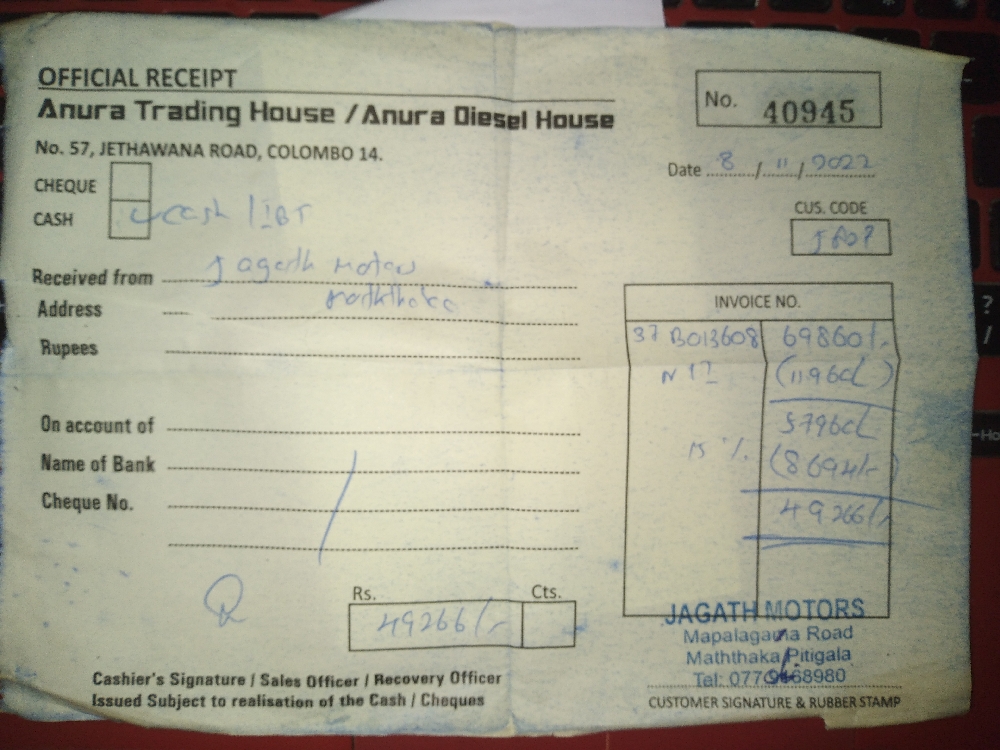 OFFICIAL RECEIPT
Anura Trading House / Anura Diesel House
No. 57, JETHAWANA ROAD, COLOMBO 14.
No. 40945
Date 8 / 11 / 2022
CHEQUE
CASH cash
CUS. CODE
Received from Jagath Motors
Address
Rupees
On account of
Name of Bank
Cheque No.
INVOICE NO.
37 B013608 69860/-
(11960/-)
57960/-
15 % (8694/-)
49266/-
Rs. Cts.
49266/-
Cashier's Signature / Sales Officer / Recovery Officer
Issued Subject to realisation of the Cash / Cheques
JAGATH MOTORS
Mapalagama Road
Maththaka, Pitigala
Tel:
CUSTOMER SIGNATURE & RUBBER STAMP